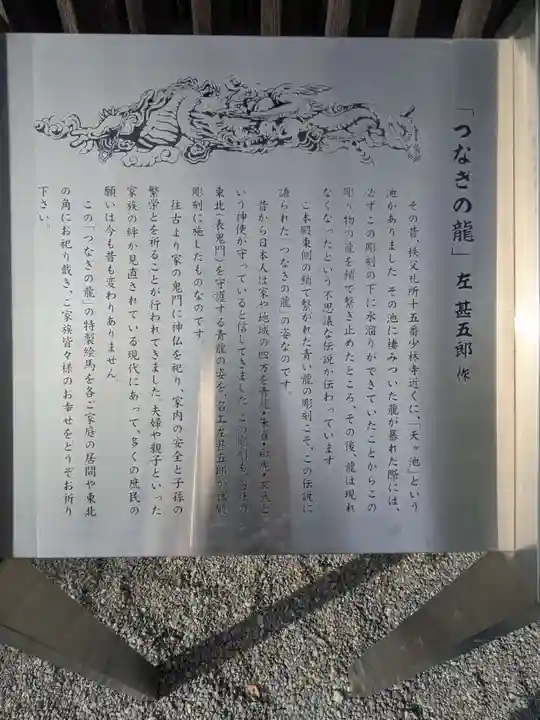 「つなぎの龍」 左 甚五郎 作
その昔、秩父札所十五番少林寺近くに、「天ヶ池」という
池がありました その池に棲みついた龍が暴れた際には、
必ずこの彫刻の下に水溜りができていたことからこの
彫り物の龍を鎖で繋ぎ止めたところ、その後、龍は現れ
なくなったという不思議な伝説が伝わっています
ご本殿東側の鎖で繋がれた青い龍の彫刻こそ、この伝説に
語られた「つなぎの龍」の姿なのです。
昔から日本人は家や地域の四方を青龍・朱雀・白虎・玄武と
いう神使が守っていると信じてきました この彫刻も、
東北(表鬼門)を守護する青龍の姿を、名工左甚五郎が
彫刻に施したものなのです。
往古より家の鬼門に神仏を祀り、家内の安全と子孫の
繁栄とを祈ることが行われてきました。夫婦や親子といった
家族の絆が見直されている現代にあって、多くの庶民の
願いは今も昔も変わりありません
この「つなぎの龍」の特製絵馬を各ご家庭の居間や東北
の角にお祀り戴き、ご家族皆々様のお幸せをどうぞお祈り
下さい。